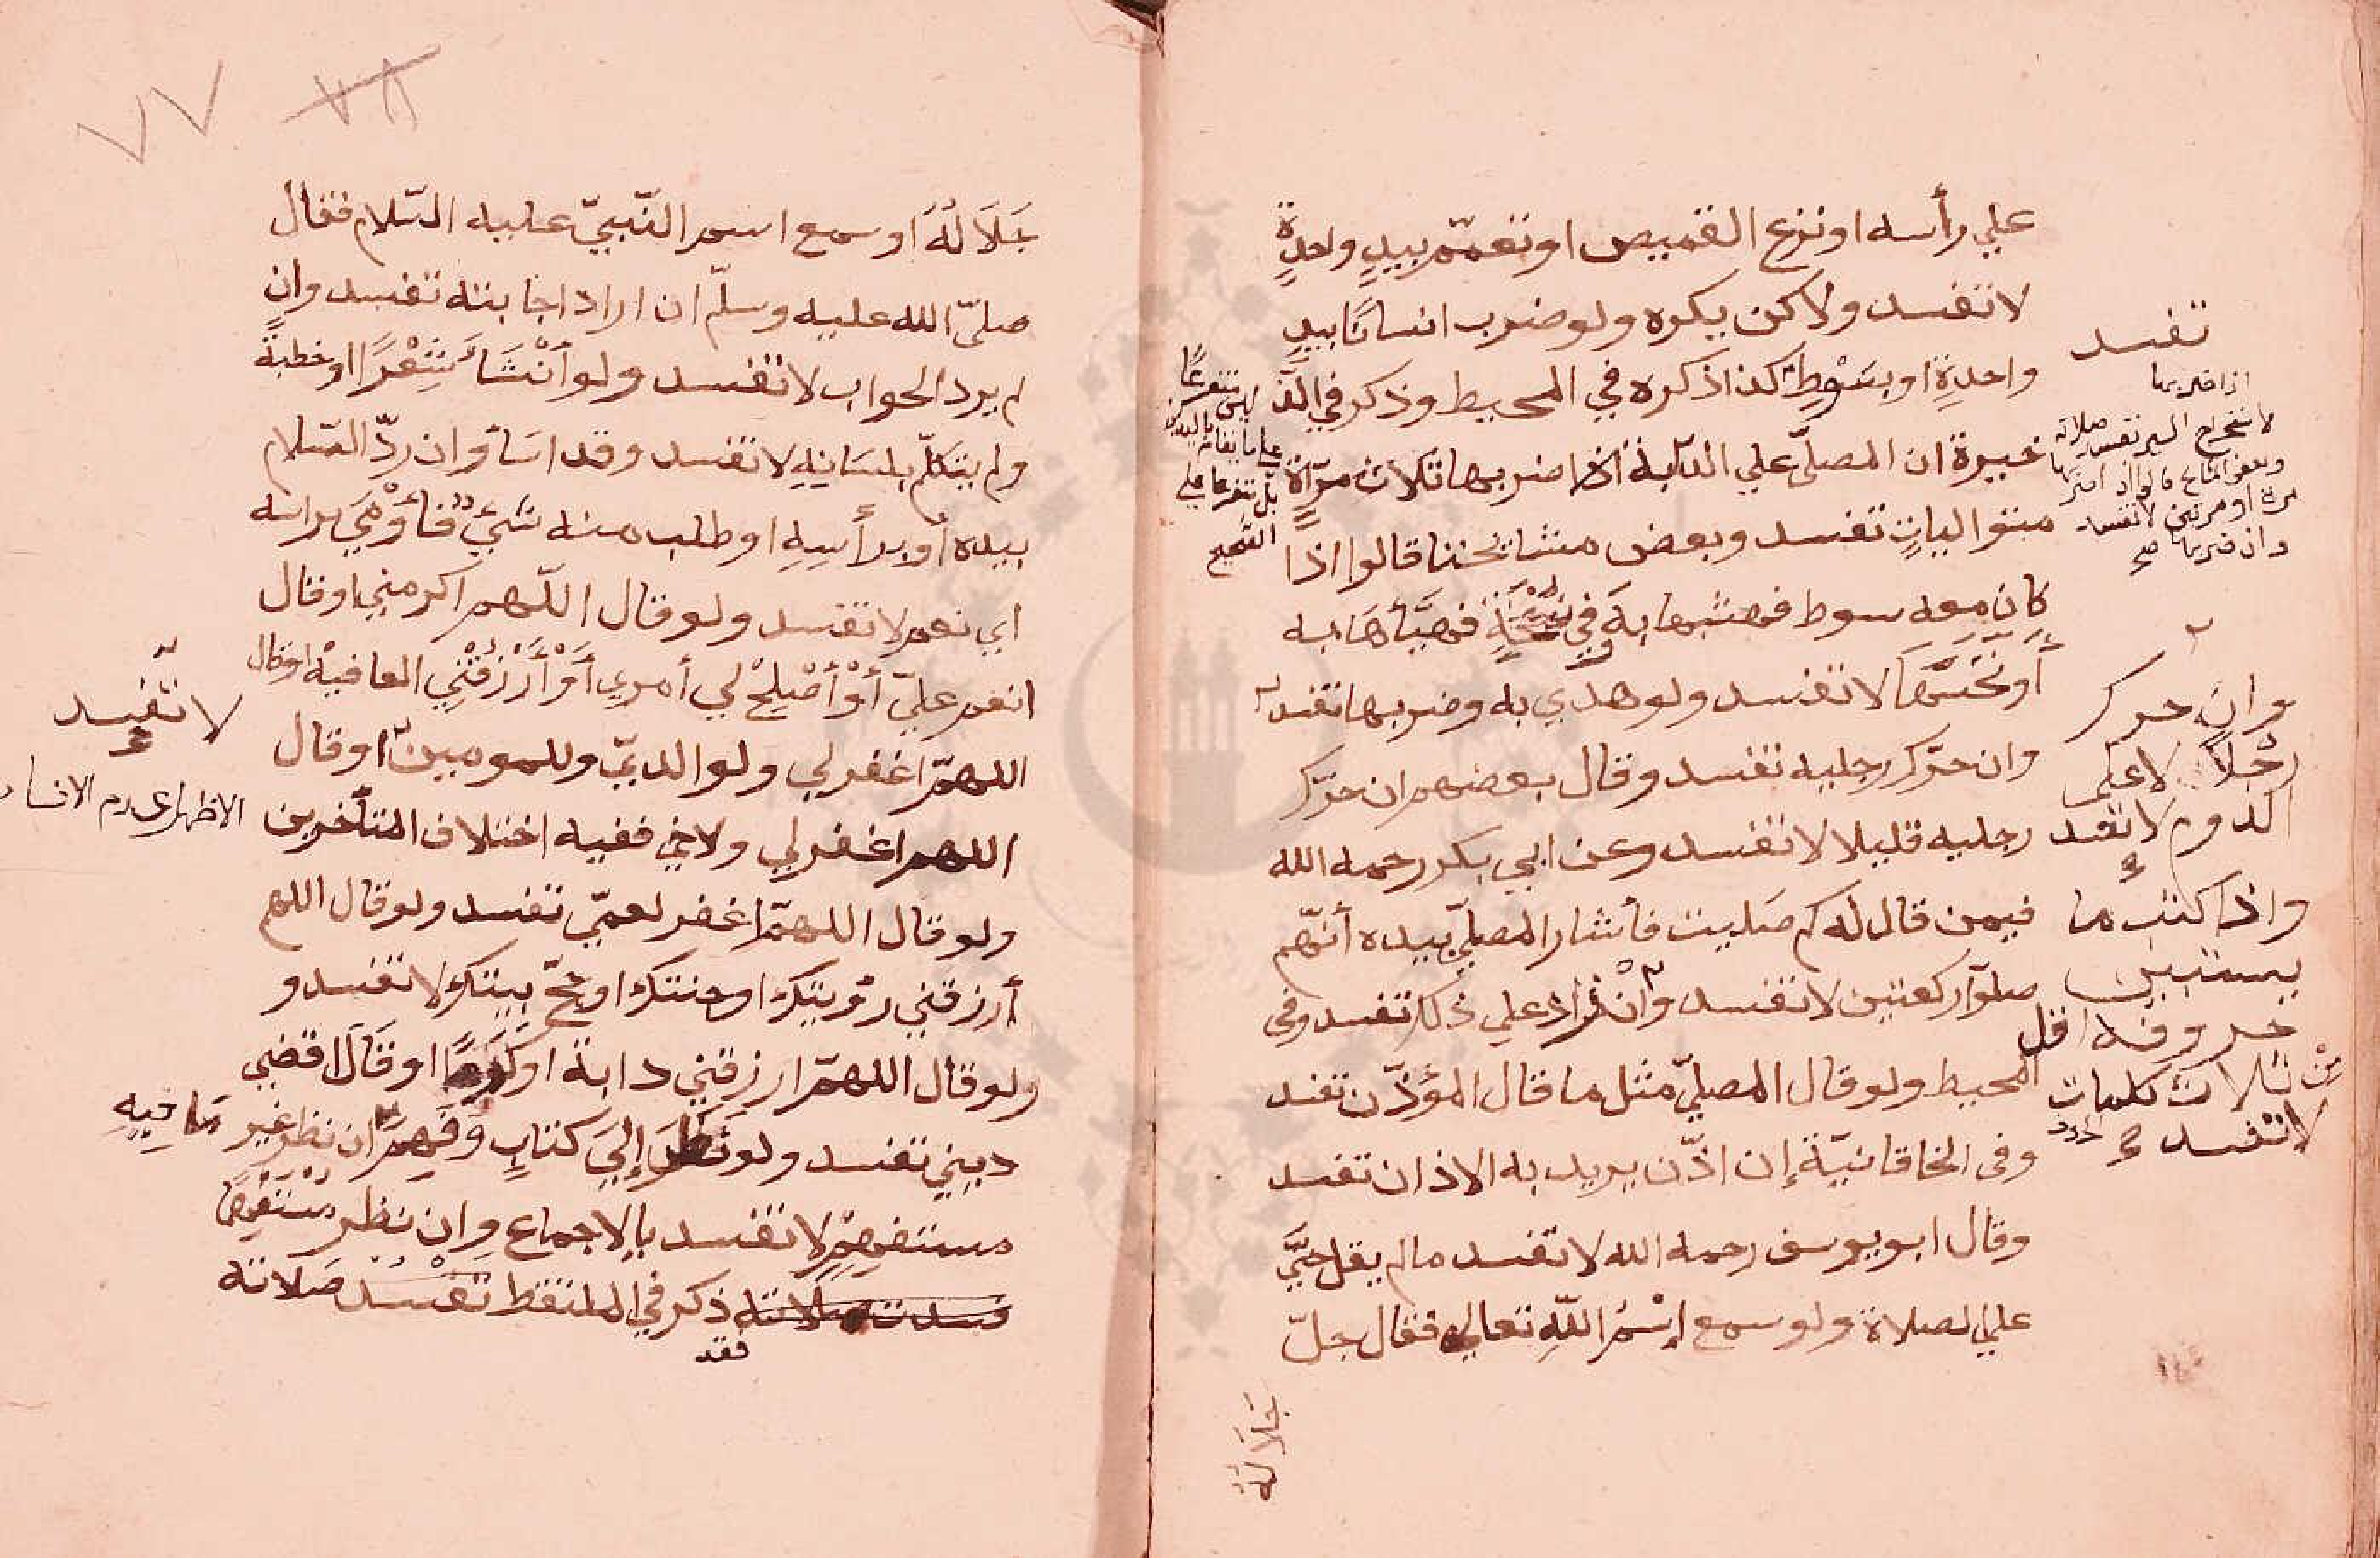 علي رأسه او نزع القميص او تعمّم بيدٍ واحدةٍ
لا تفسد ولاكن يكره ولو ضرب انسانًا بيدٍ
واحدةٍ او بسَوْطٍ كذا ذكره في المحيط وذكر في الذّ
خيرة ان المصلّي علي الدّآبة اذا ضربها ثلاث مرّاة
متواليات تفسد وبعض مشايخنا قالوا اذا
كان معه سوط فهشها به في فهيّأها به
أو نخسّها لا تفسد ولو هدي به وضربها تفسد
وان حرّك رجليه تفسد وقال بعضهم ان حرّك
رجليه قليلا لا تفسد وعن ابي بكر رحمه الله
فيمن قال له كم صليت فأشار المصلّي بيده أنّهم
صلوآ ركعتين لا تفسد وان زاد علي ذلك تفسد وفي
المحيط ولو قال المصلّي مثل ما قال المؤذّن تفسد
وفي الخاقانيّة إن اذّن يريد به الاذان تفسد
وقال ابو يوسف رحمه الله لا تفسد ما لم يقل حيَّ
علي الصلاة ولو سمع إسْمُ اللّهِ تعالي فقال جلّ
جَلَالُهُ
تفسد
اذا ضربها
لاستخراج السير تفسد صلاته
وبعض المشايخ قالوا ان ضربها
مرة او مرتين لا تفسد
وان ضربها صح
وان حرك
رِجْلًا لا على
الدوم لا تفسد
واذا كتب ما
يستبين
حروفه اقل
مِنْ ثلاث كلمات
لا تفسد صح
ليس متفرعًا
علي ما يقام باليدين
بل متفرعا علي
الصحيح
٧٨ ٧٧
جَلَالُهُ او سمع اسم النّبيّ عليه السّلام فقال
صليّ الله عليه وسلّم ان اراد اجابته تفسد وان
لم يرد الجواب لا تفسد ولو أَنْشَأَ شِعْرًا او خطبة
ولم يتكلّم بلسَانِهِ لا تفسد وقد اسَأ وان ردّ السّلام
بيده أو برأسِهِ او طلب منه شيءٌ فأَوْمَيَ براسه
اي نعم لا تفسد ولو قال اللّهم اكرمني او قال
انعم عليّ أوْ أصْلِحْ لي أمري أَوْ أَرْزُقْنِي العافية او قال
اللهمّ اغفر لي ولوالديّ وللمومنين او قال
اللهم اغفر لي ولاخي ففيه اختلاف المتأخرين
ولو قال اللهمّ اغفر لعمّي تفسد ولو قال اللهم
أرزقني رؤيتك او جنتك او حجّ بيتك لا تفسد و
ولو قال اللهمّ ارزقني دابة او كَرَمًا او قال اقضي
ديني تفسد ولو نَظَرَ إِلَيَ كتابٍ وَفَهِمَ ان نظر غير مَا فِيهِ
مستفهمٍ لا تفسد بالاجماع وان نظر مستفهِمًا
فسدت صلاته ذكر في الملتقط تفسد صلاته
فقد
لا تفسد
صح
الاظهر عدم الافساد